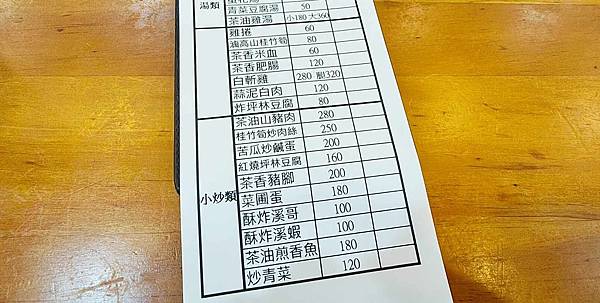 湯類
青菜豆腐湯 50
茶油雞湯 小180 大360
雞捲 60
滷高山桂竹筍 80
茶香米血 60
茶香肥腸 120
白斬雞 280 腿320
蒜泥白肉 120
炸坪林豆腐 80
小炒類
茶油山豬肉 280
桂竹筍炒肉絲 250
苦瓜炒鹹蛋 200
紅燒坪林豆腐 160
茶香豬腳 200
菜圃蛋 180
酥炸溪哥 100
酥炸溪蝦 100
茶油煎香魚 180
炒青菜 120